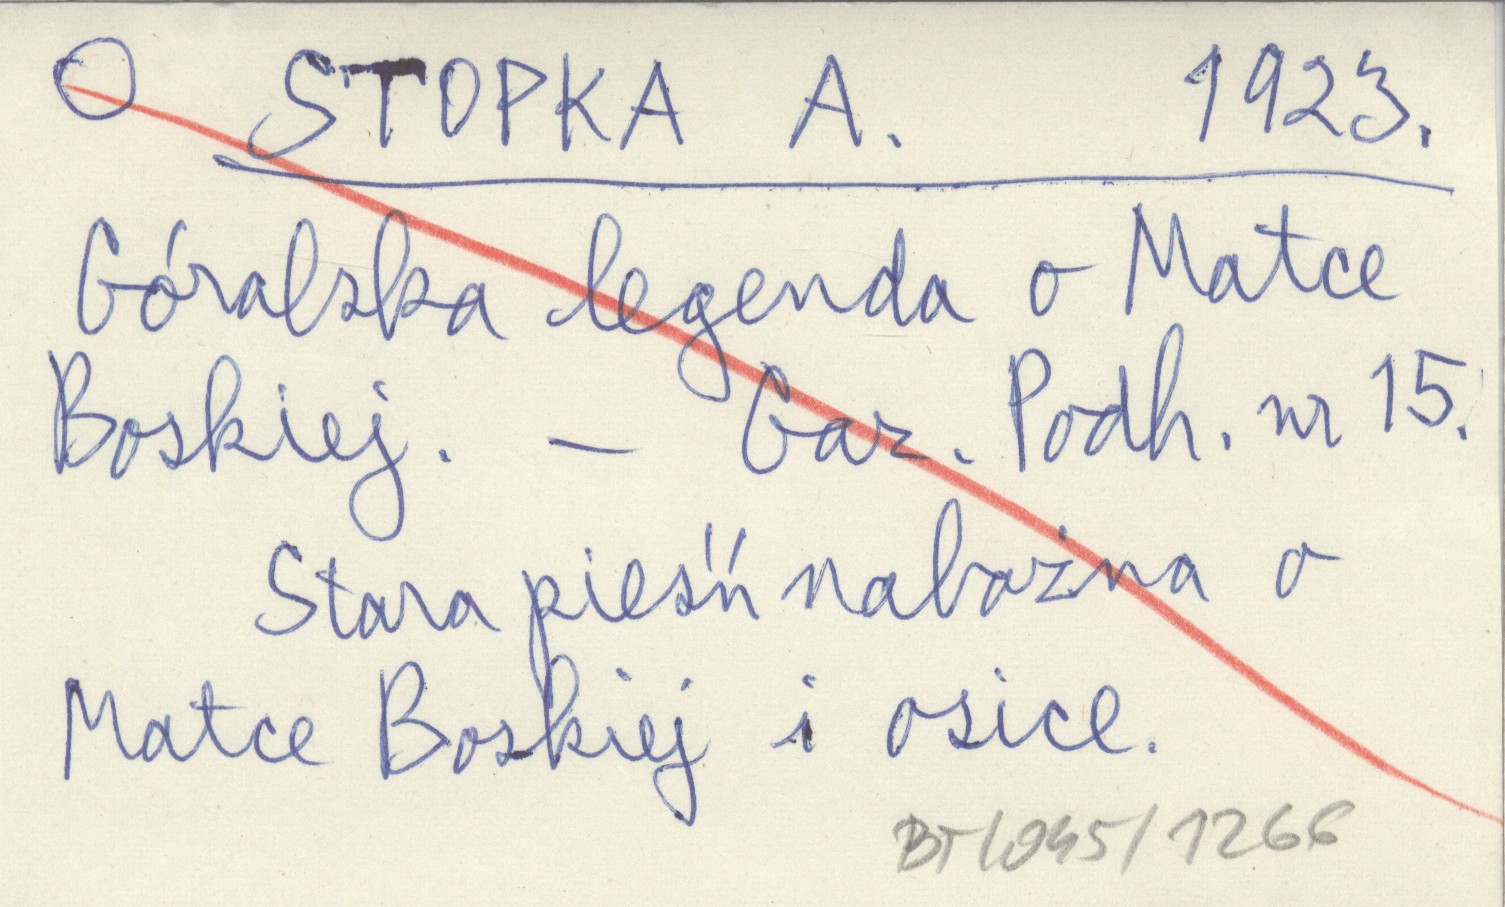 O STOPKA A. 1923.
Góralska legenda o Matce
Boskiej. — Gaz. Podh. nr 15.
Stara pieśń nabożna o
Matce Boskiej i osice.
BT/045/1266